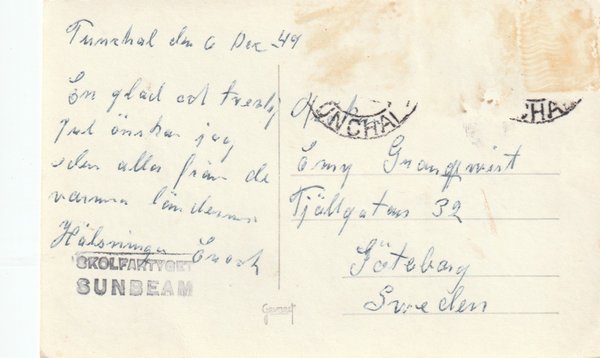 Funchal den 6 Dec -49
En glad och trevlig
Jul önskar jag
eder alla från de
varma länderna
Hälsningar Enoch
SKOLFARTYGET
SUNBEAM
FUNCHAL
FUNCHAL
Emy Granqwist
Fjällgatan 32
Göteborg
Sweden
Gevaert